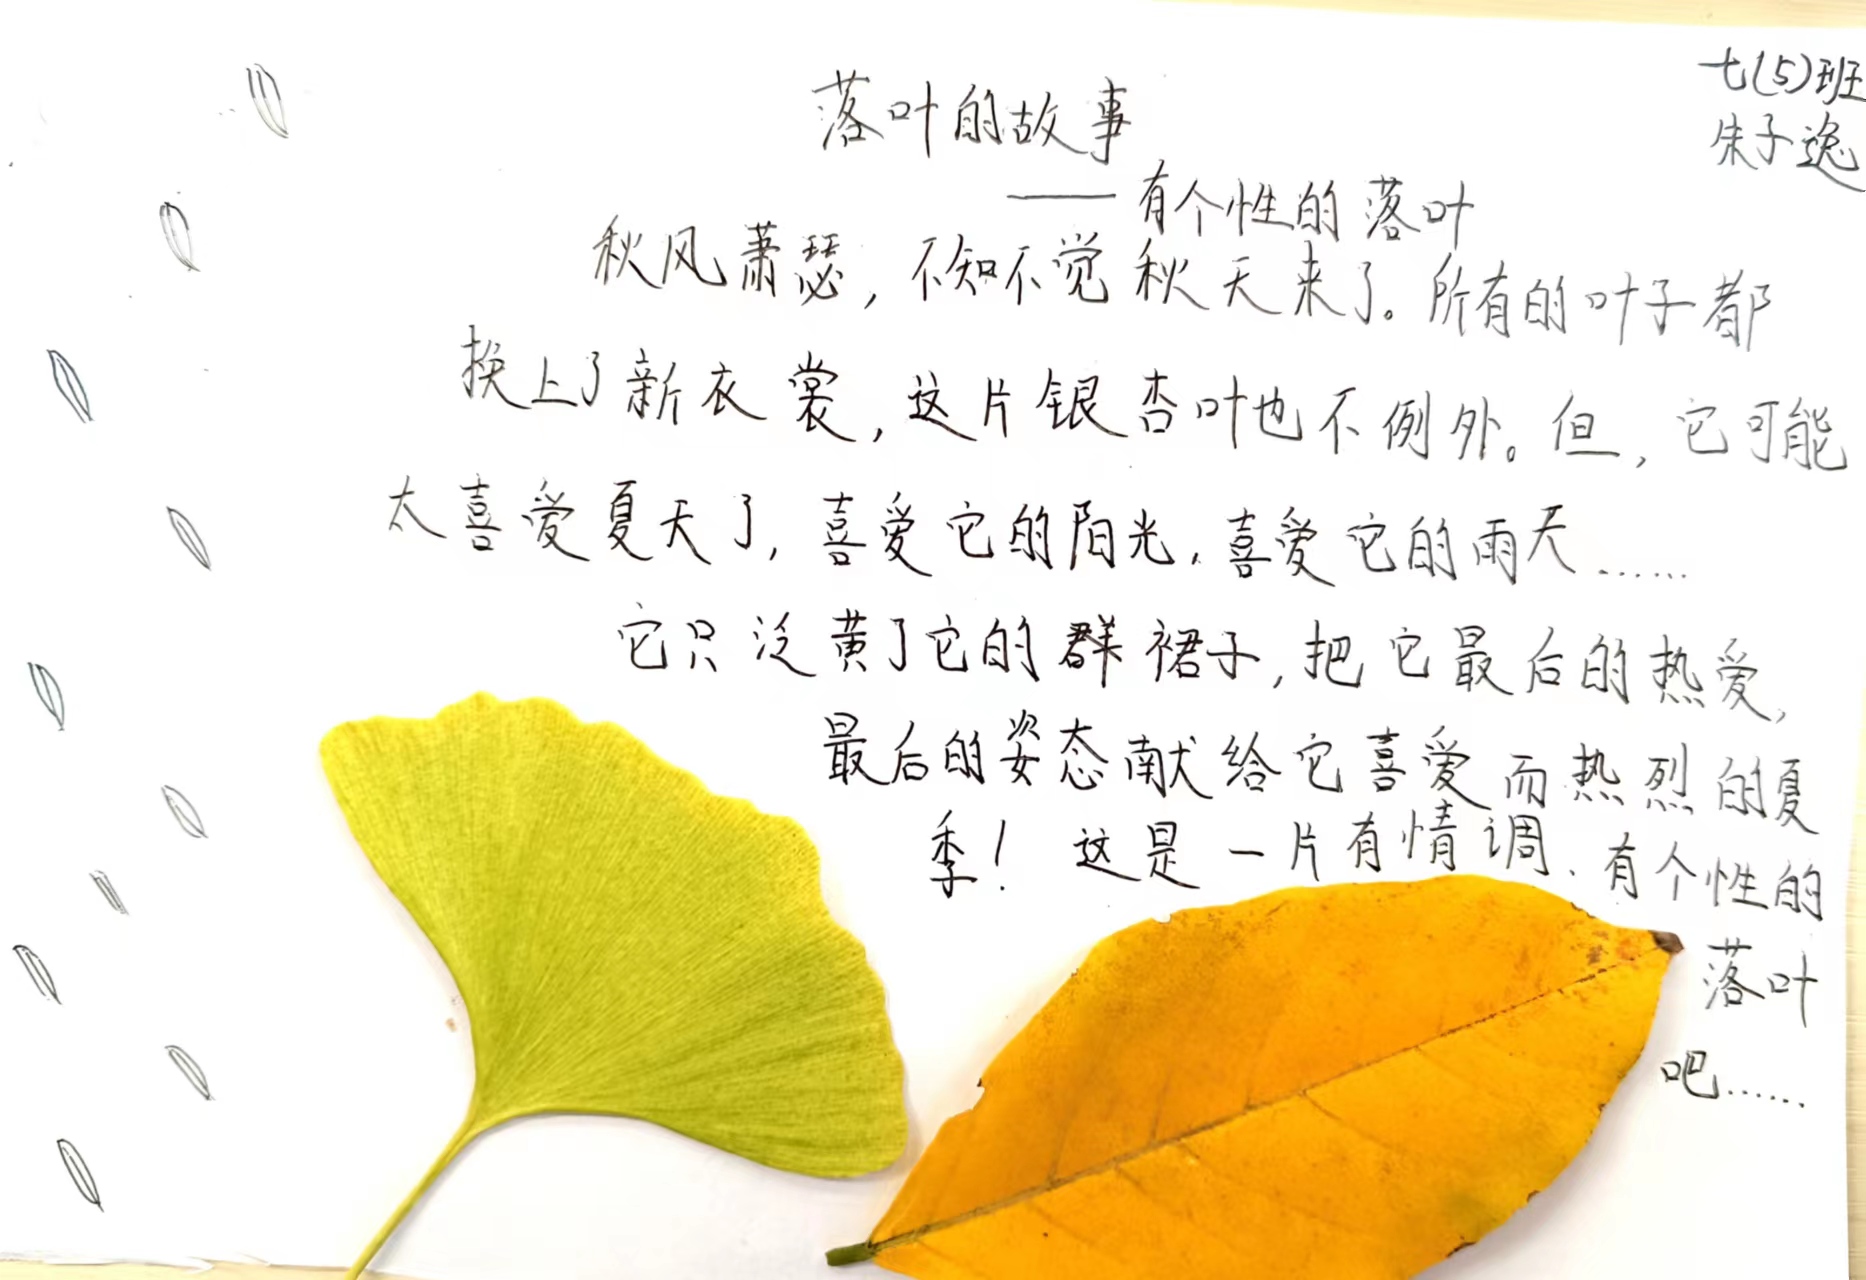 七(5)班
朱子逸
落叶的故事
——有个性的落叶
秋风萧瑟，不知不觉秋天来了。所有的叶子都
换上了新衣裳，这片银杏叶也不例外。但，它可能
太喜爱夏天了，喜爱它的阳光，喜爱它的雨天……
它只泛黄了它的群裙子，把它最后的热爱，
最后的姿态献给它喜爱而热烈的夏
季！这是一片有情调、有个性的
落叶
吧……